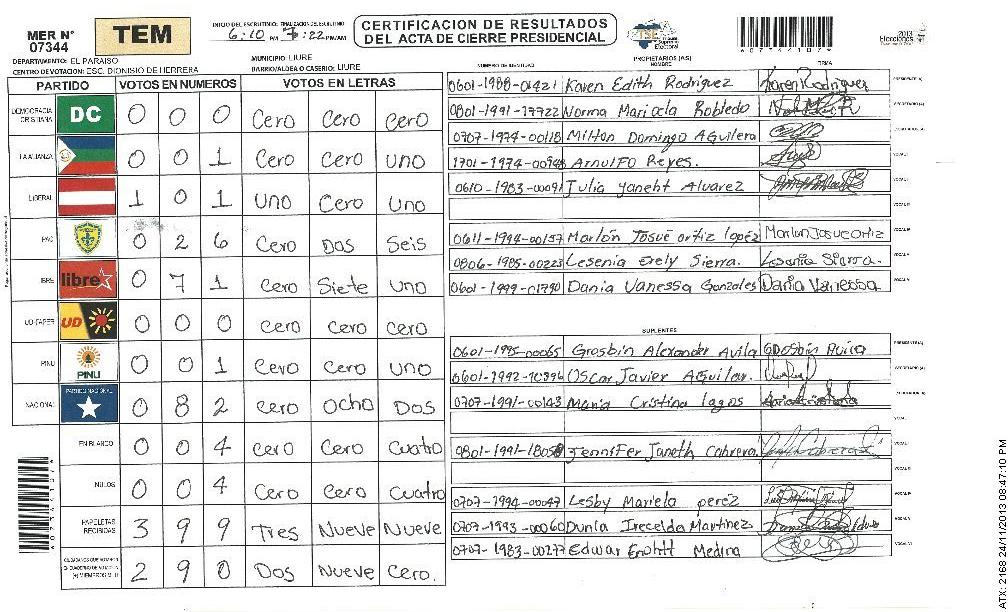 MER N° 07344
TEM
INICIO DEL ESCRUTINIO: 6:10 PM FINALIZACION DEL ESCRUTINIO 7:22 PM/AM
CERTIFICACION DE RESULTADOS
DEL ACTA DE CIERRE PRESIDENCIAL
TSE
2013
Elecciones
DEPARTAMENTO: EL PARAISO
MUNICIPIO: LIURE
CENTRO DE VOTACION: ESC. DIONISIO DE HERRERA
BARRIO/ALDEA O CASERIO: LIURE
PARTIDO VOTOS EN NUMEROS VOTOS EN LETRAS
DEMOCRACIA CRISTIANA DC 0 0 0 Cero Cero Cero
LA ALIANZA 0 0 1 Cero Cero Uno
LIBERAL 1 0 1 Uno Cero Uno
PAC 0 2 6 Cero Dos Seis
LIBRE libre 0 7 1 Cero Siete Uno
UD-FAPER UD 0 0 0 Cero Cero Cero
PINU PINU 0 0 1 Cero Cero Uno
NACIONAL PARTIDO NACIONAL 0 8 2 Cero Ocho Dos
EN BLANCO 0 0 4 Cero Cero Cuatro
NULOS 0 0 4 Cero Cero Cuatro
PAPELETAS RECIBIDAS 3 9 9 Tres Nueve Nueve
2 9 0 Dos Nueve Cero.
NUMERO DE IDENTIDAD PROPIETARIOS (AS) NOMBRE FIRMA
0601-1988-01421 Karen Edith Rodriguez Karen Rodriguez PRESIDENTE (A)
0801-1991-17722 Norma Maricela Robledo SECRETARIO (A)
0707-1974-00118 Milton Domingo Aguilera
1701-1974-00948 Arnulfo Reyes. VOCAL I
0610-1983-00091 Julia Yaneht Alvarez
0611-1994-00157 Marlón Josué ortiz lopéz Marlon Josue Ortiz
0806-1985-00223 Lesenia Erely Sierra. Lesenia Sierra.
0601-1999-01790 Dania Vanessa Gonzales Dania Vanessa
SUPLENTES
0601-1995-00065 Grosbin Alexander Avila PRESIDENTE (A)
0601-1992-10396 Oscar Javier Aguilar. SECRETARIO (A)
0707-1991-00143 Maria Cristina lagos
0801-1991-18058 Jennifer Janeth Cabrera
0707-1994-00047 Lesby Mariela perez
0707-1993-00060 Dunia Irecelda Martinez
0707-1983-00277 Edwar Medina
ATX: 2168 24/11/2013 08:47:10 PM